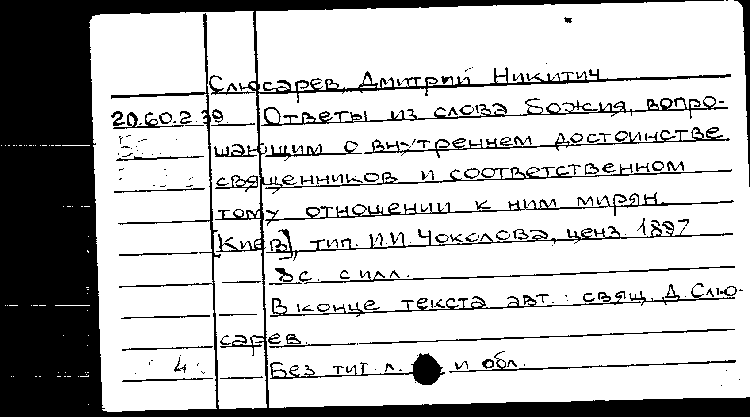 Слюсарев, Дмитрий Никитич
20.60.2.39 Ответы из слова Божия, вопро-
шающим о внутреннем достоинстве
священников и соответственном
тому отношении к ним мирян.
[Киев], тип. И.И. Чоколова, ценз. 1897
8с. с илл.
В конце текста авт.: свящ. Д. Слю-
сарев.
4. Без тит. л. и обл.